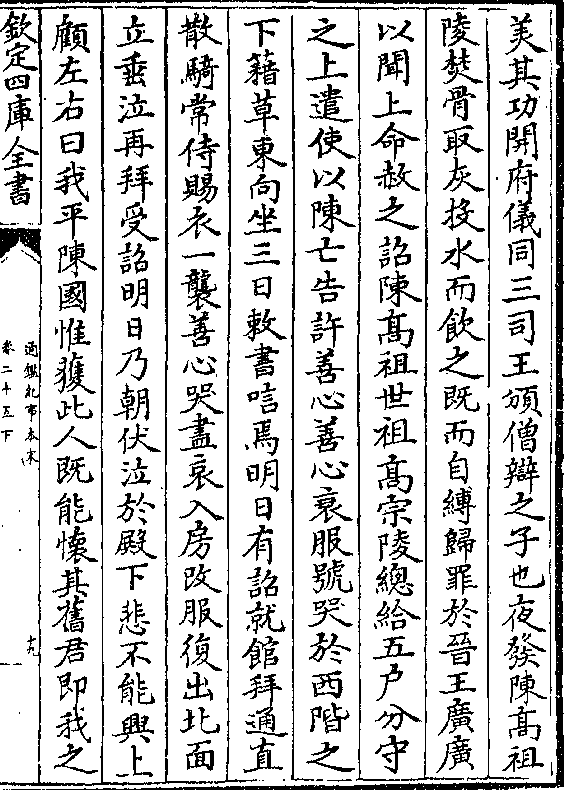 美其功開府儀同三司王頒僧辯之子也夜發陳髙祖
陵焚骨取灰投水而飲之既而自縛歸罪於晉王廣廣
以聞上命赦之詔陳髙祖世祖髙宗陵總給五户分守
之上遣使以陳亡告許善心善心衰服號哭於西階之
下藉草東向坐三日敕書唁焉明日有詔就館拜通直
散騎常侍賜衣一襲善心哭盡哀入房改服復出北面
立垂泣再拜受詔明日乃朝伏泣於殿下悲不能興上
顧左右曰我平陳國惟獲此人既能懷其舊君即我之
欽定四庫全書
通鑑紀事本末
卷二十五下
十九